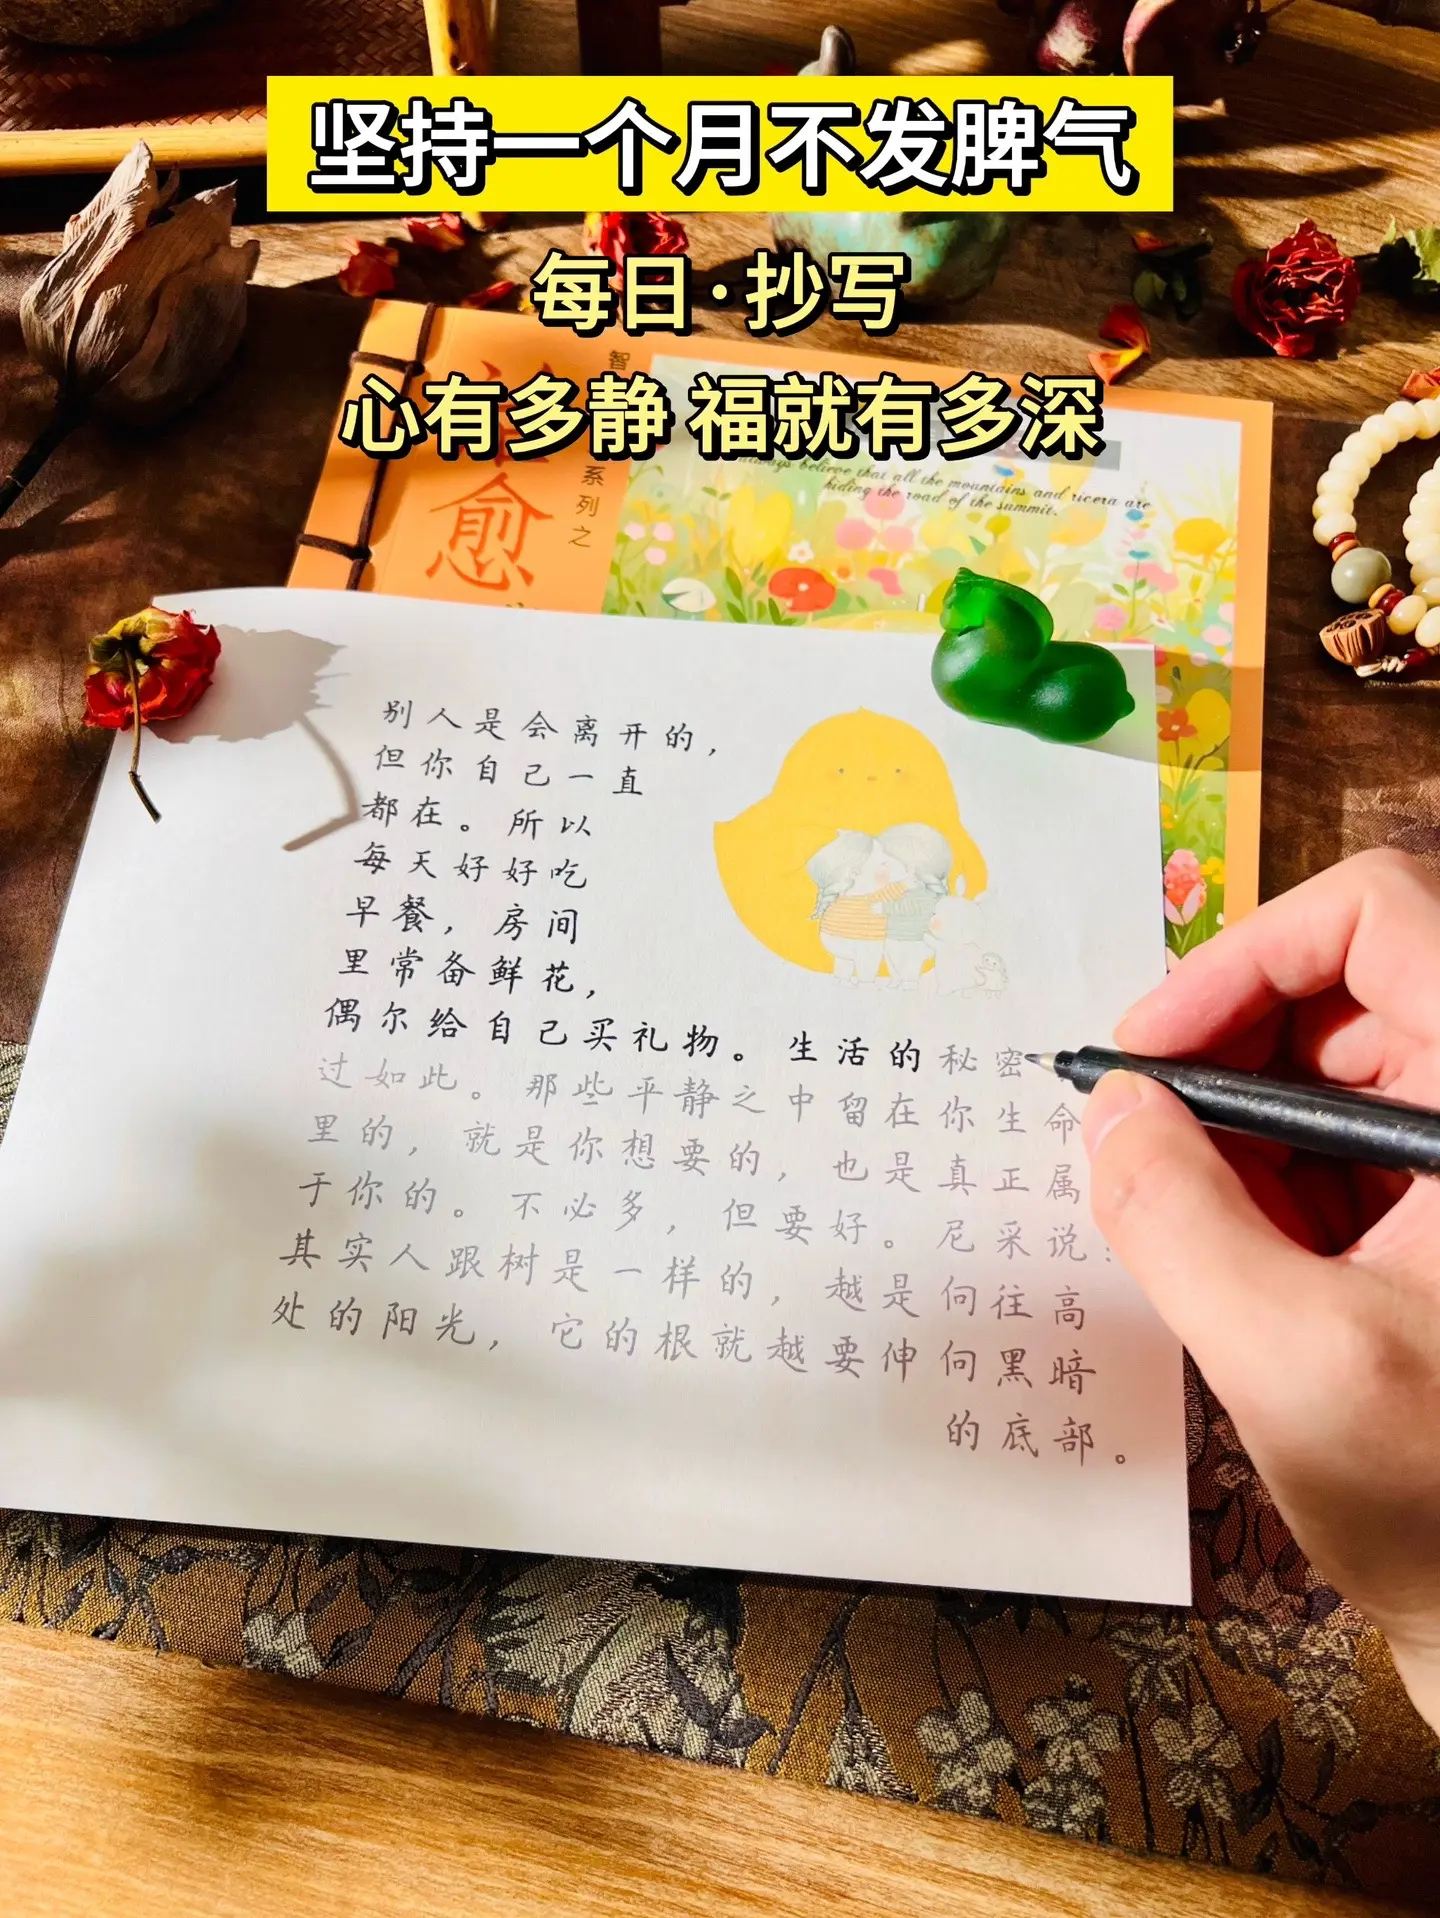 坚持一个月不发脾气
每日·抄写
心有多静 福就有多深
智
系列之
愈
always believe that all the mountains and ricera are
hiding the road of the summit.
别人是会离开的，
但你自己一直
都在。所以
每天好好吃
早餐，房间
里常备鲜花，
偶尔给自己买礼物。生活的秘密
过如此。那些平静之中留在你生命
里的，就是你想要的，也是真正属
于你的。不必多，但要好。尼采说：
其实人跟树是一样的，越是向往高
处的阳光，它的根就越要伸向黑暗
的底部。